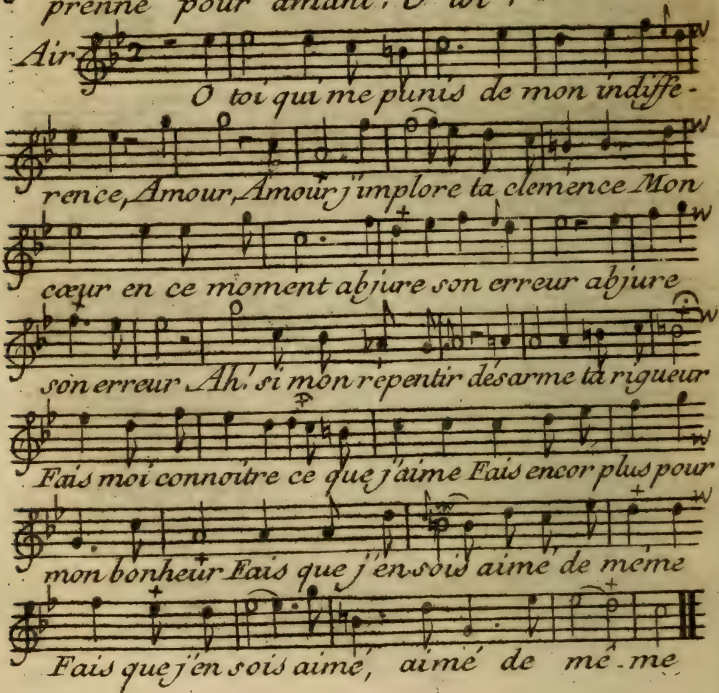 prenne pour amant. O toi
Air
O toi qui me punis de mon indiffe-
rence, Amour, Amour j'implore ta clemence Mon
cœur en ce moment abjure son erreur abjure
son erreur Ah! si mon repentir désarme ta rigueur
Fais moi connoitre ce que j'aime Fais encor plus pour
mon bonheur Fais que j'en sois aimé, de même
Fais que j'en sois aimé, aimé de mê-me